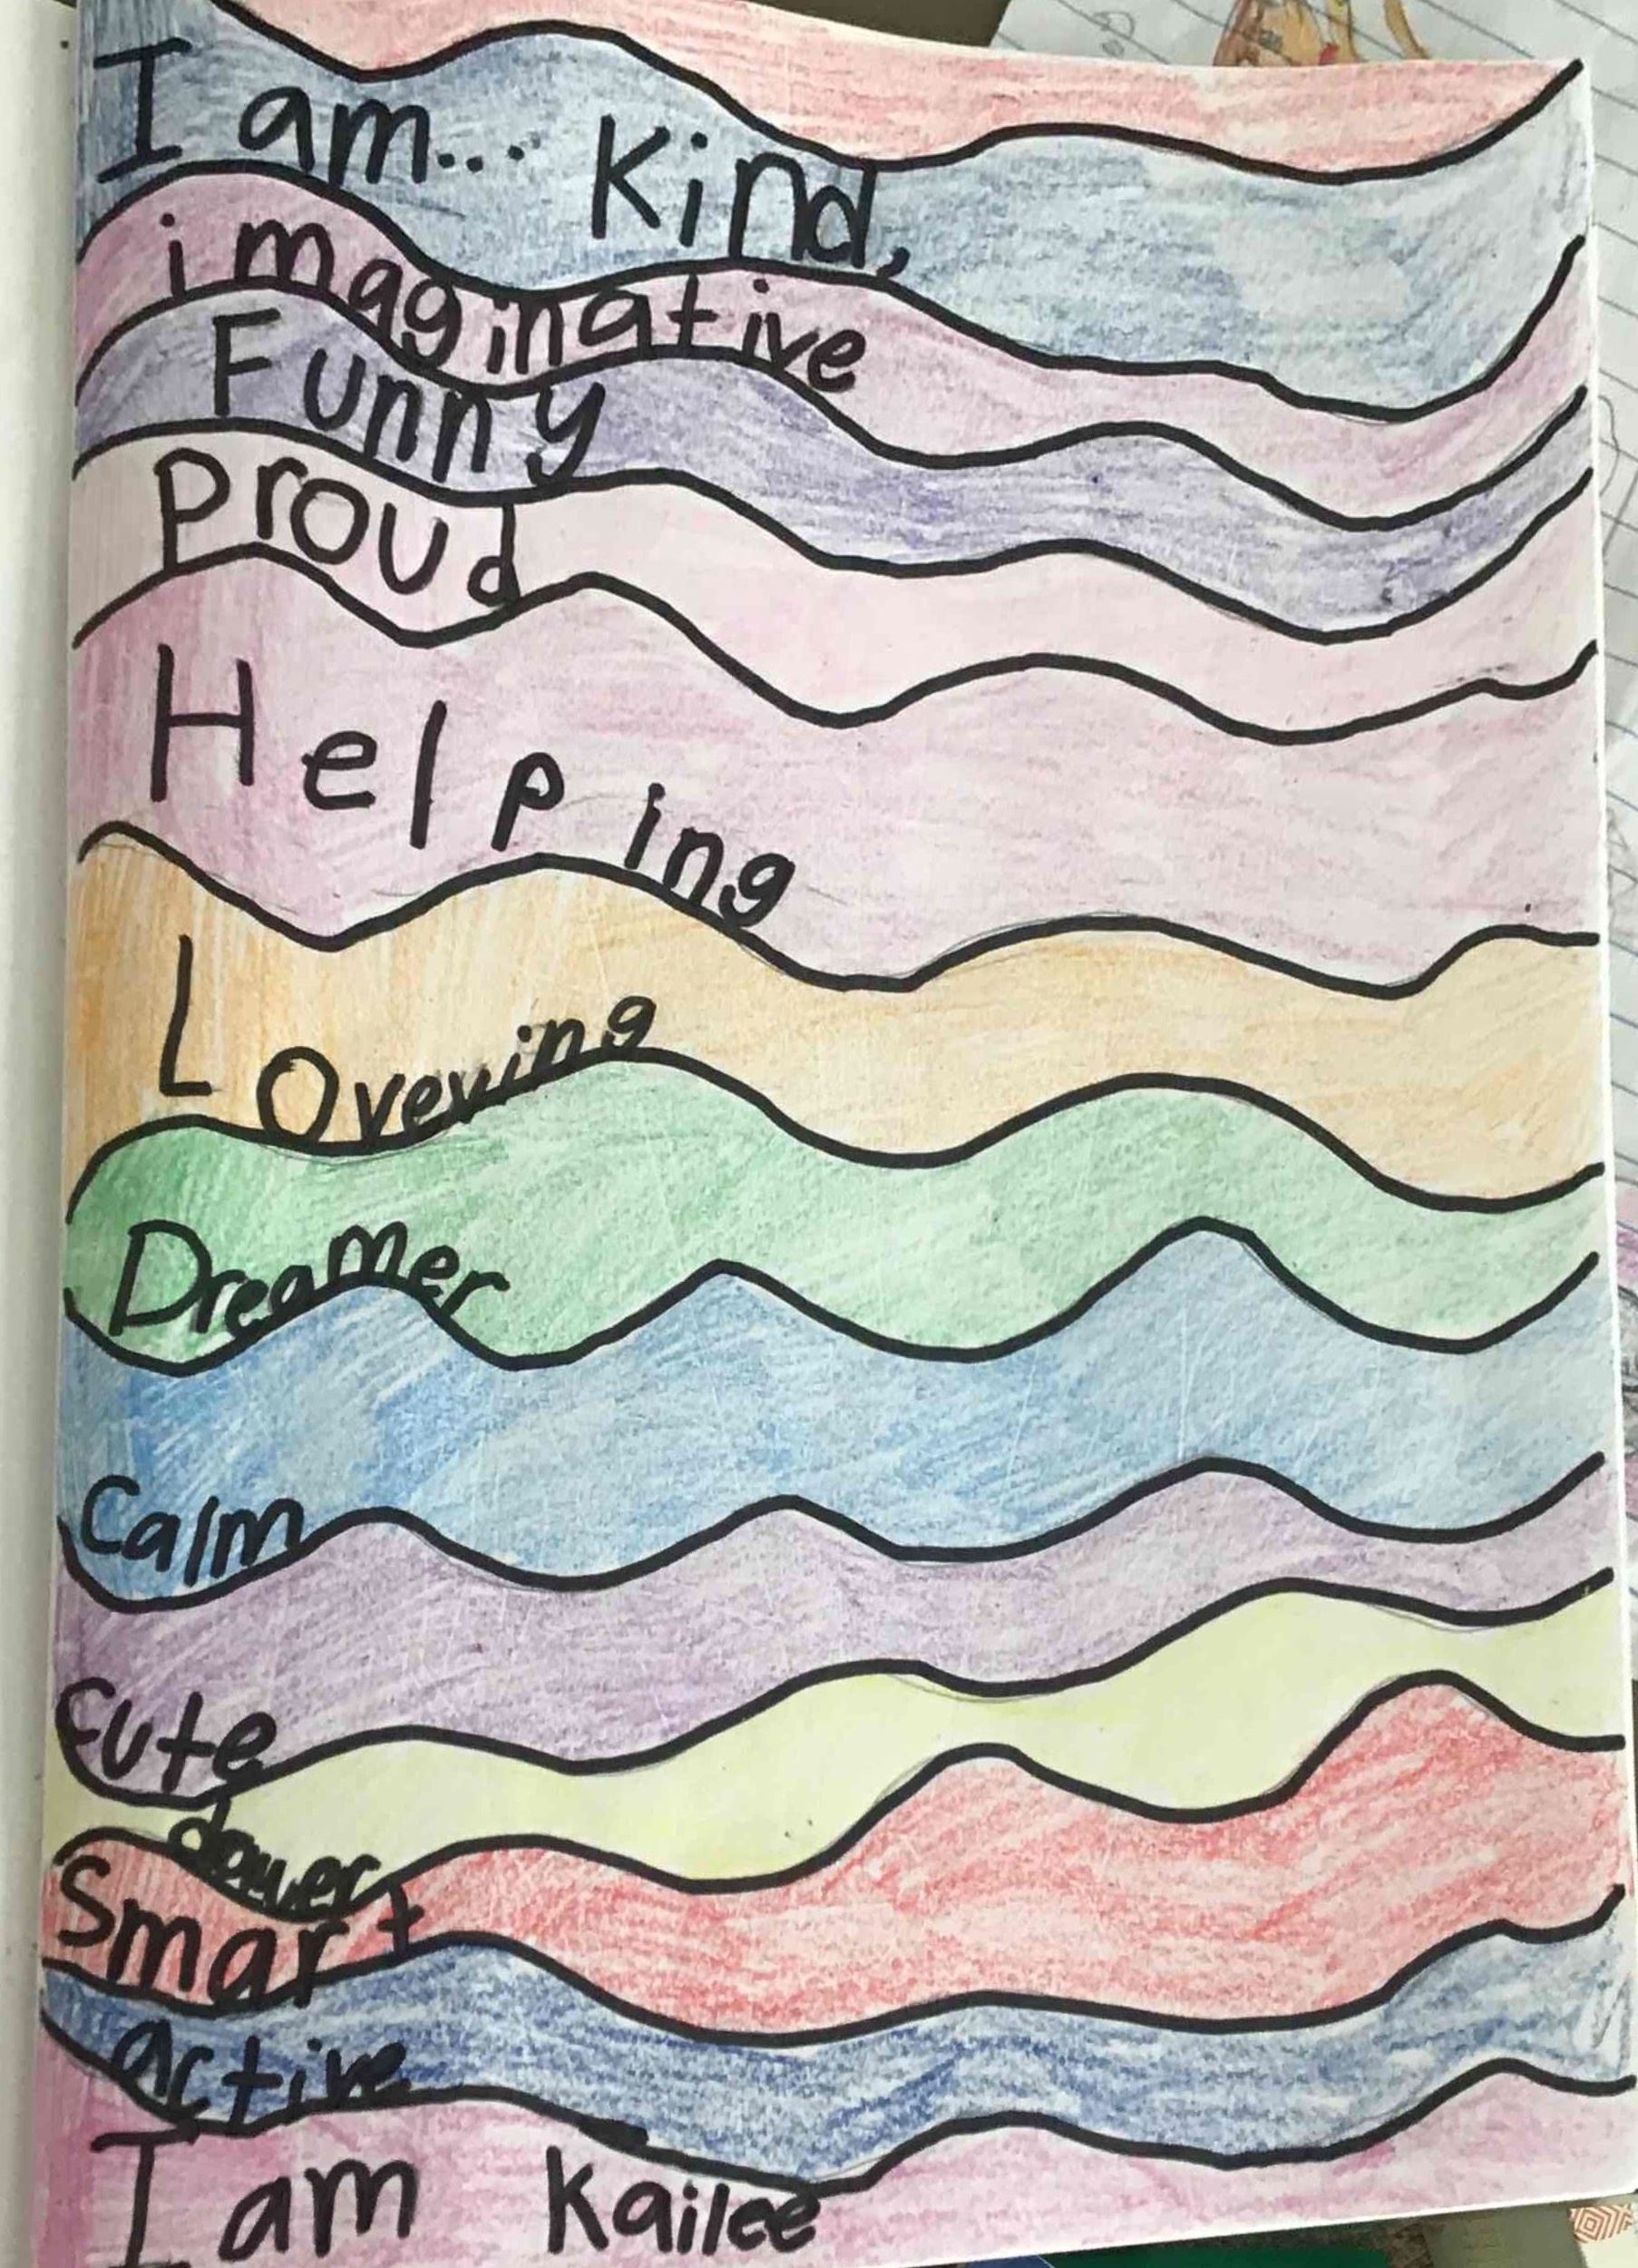 I am... Kind,
imaginative
Funny
Proud
Helping
Loveving
Dreamer
Calm
Cute
Smart
active
I am Kailee